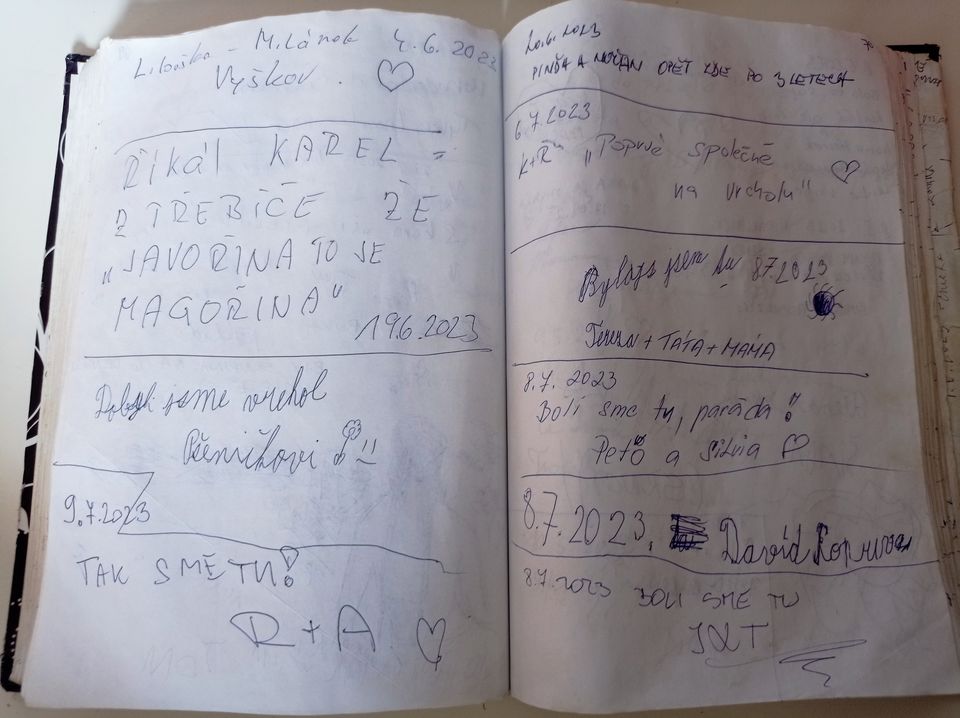 Liduška - Milánek 4.6.2023
Vyškov.
ŘÍKAL KAREL
Z TŘEBÍČE ŽE
„JAVOŘINA TO JE
MAGOŘINA"
19.6.2023
Dobyli jsme vrchol
Pšeničkovi
9.7.2023
TAK SMĚ TU!
R + A
20.6.2023
OPĚT ZDE PO 3 LETECH
6.7.2023
K+R „Poprvé společně
na vrcholu"
Byla jsem tu 8.7.2023
Tereza + TÁTA + MÁMA
8.7.2023
Boli sme tu, paráda!
Peťo a Silvia
8.7.2023, David
8.7.2023 BOLI SME TU